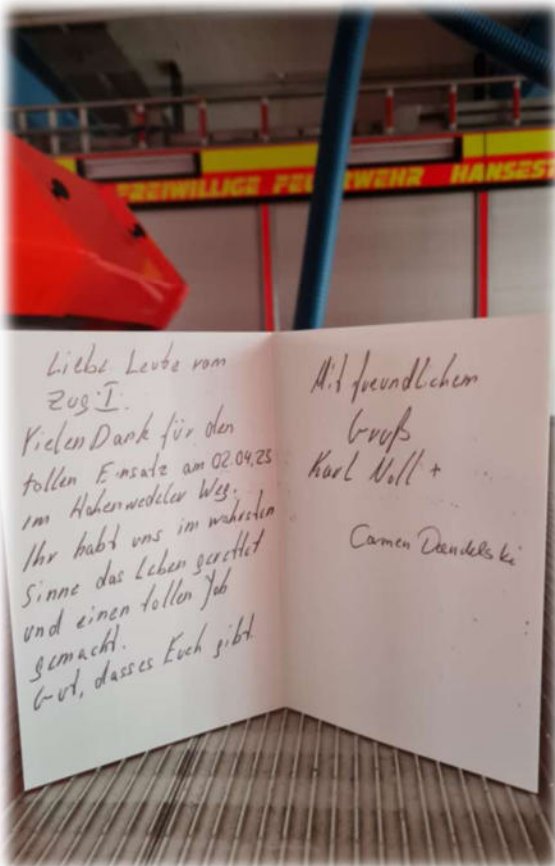 FREIWILLIGE FEUERWEHR HANSEST
Liebe Leute vom
Zug I.
Vielen Dank für den
tollen Einsatz am 02.04.25
im Hohenwedeler Weg.
Ihr habt uns im wahrsten
Sinne das Leben gerettet
und einen tollen Job
gemacht.
Gut, dass es Euch gibt.
Mit freundlichem
Gruß
Karl Noll +
Carmen